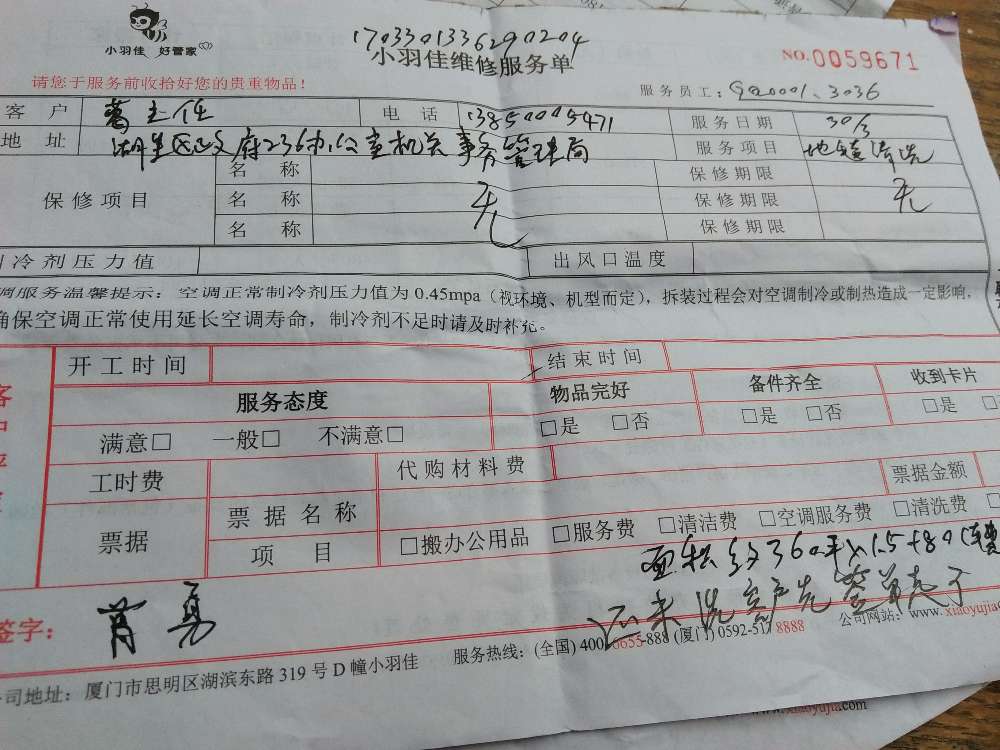 小羽佳 好管家
1703301336290204
小羽佳维修服务单
NO.0059671
请您于服务前收拾好您的贵重物品！
服务员工：900001、3036
客户 葛主任 电话 13850005471 服务日期 30/3
地址 湖里区政府236办公室机关事务管理局 服务项目 地毯清洗
保修项目 名称 无 保修期限 无
名称 保修期限
名称 保修期限
冷剂压力值 出风口温度
调服务温馨提示：空调正常制冷剂压力值为0.45mpa（视环境、机型而定），拆装过程会对空调制冷或制热造成一定影响，
确保空调正常使用延长空调寿命，制冷剂不足时请及时补充。
开工时间 结束时间
服务态度 物品完好 备件齐全 收到卡片
满意□ 一般□ 不满意□ □是 □否 □是 □否 □是
工时费 代购材料费 票据金额
票据 票据名称
项目 □搬办公用品 □服务费 □清洁费 □空调服务费 □清洗费
面积约360平×1.5+80（车费
还未洗客户先签单走了
签字： 肖勇
司地址：厦门市思明区湖滨东路319号D幢小羽佳 服务热线：(全国) 400-6655-888 (厦门) 0592-5178888 公司网站：www.xiaoyujia
www.xiaoyujia.com